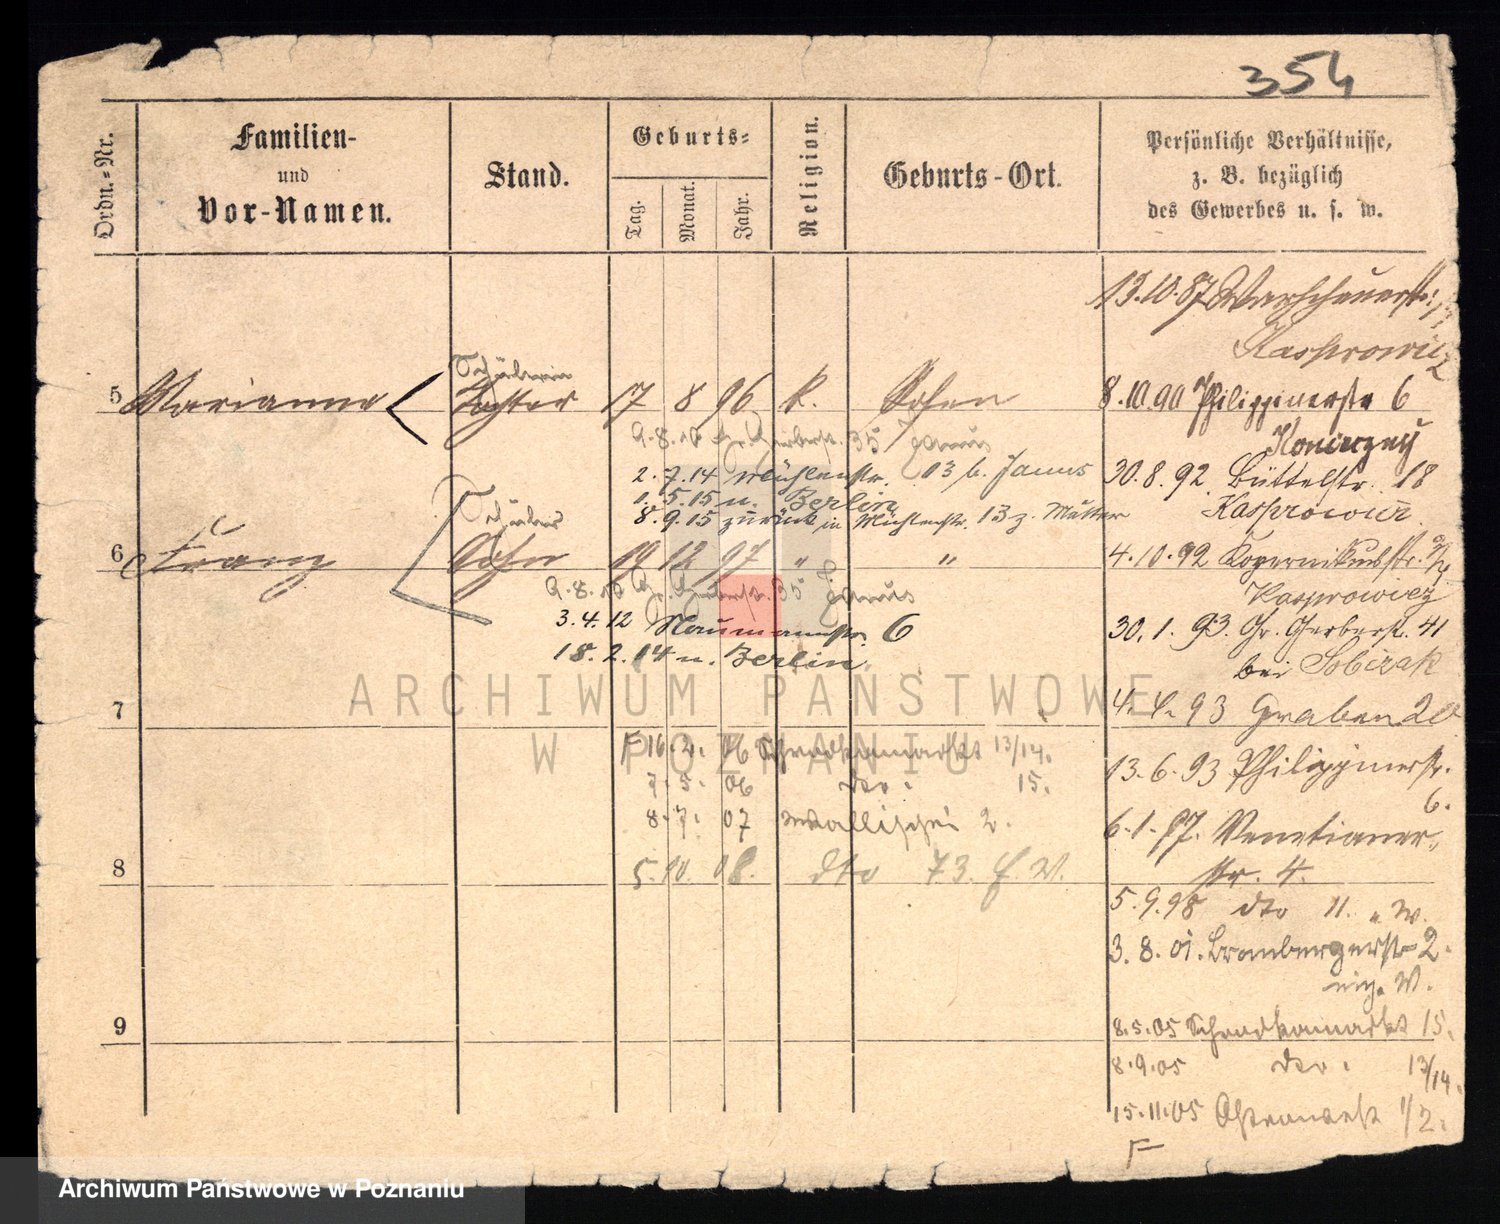 354
Ordn.-Nr.
Familien-
und
Vor-Namen.
Stand.
Geburts-
Tag.
Monat.
Jahr.
Religion.
Geburts-Ort.
Persönliche Verhältnisse,
z. B. bezüglich
des Gewerbes u. s. w.
13.10.87 Warschauerstr.
Kasprowicz
Schülerin
5 Marianna Tochter 17 8 96 k. Posen
8.10.90 Philippinerstr 6
9.8.10 Gr. Gerberstr. 35 Janus
2.7.14 Mühlenstr. 13 b. Janus
30.8.92 Büttelstr. 18
1.5.15 n. Berlin
Kasprowicz
8.9.15 zurück in Mühlenstr. 13 z. Mutter
Schüler
6 Franz Sohn 19 12 97 " "
4.10.92 Kopernikusstr.
9.8.10 Gr. Gerberstr. 35 Janus
Kasprowicz
3.4.12 Naumannstr. 6
30.1.93. Gr. Gerberstr. 41
18.2.14 n. Berlin
bei Sobczak
ARCHIWUM PAŃSTWOWE
W POZNANIU
7
4.4.93 Graben 20
F 16.2.06 Schrodkamarkt 13/14.
13.6.93 Philippinerstr.
6.
7.5.06 dto. 15.
8.7.07 Wallischei 2.
6.1.97. Venetianer-
str. 4.
8
5.10.08. dto 73. f. W.
5.9.98 dto 11. " W.
3.8.01. Brombergerstr 2.
W.
8.5.05 Schrodkamarkt 15.
9
8.9.05 dto. 13/14.
15.11.05 1/2.
F
Archiwum Państwowe w Poznaniu